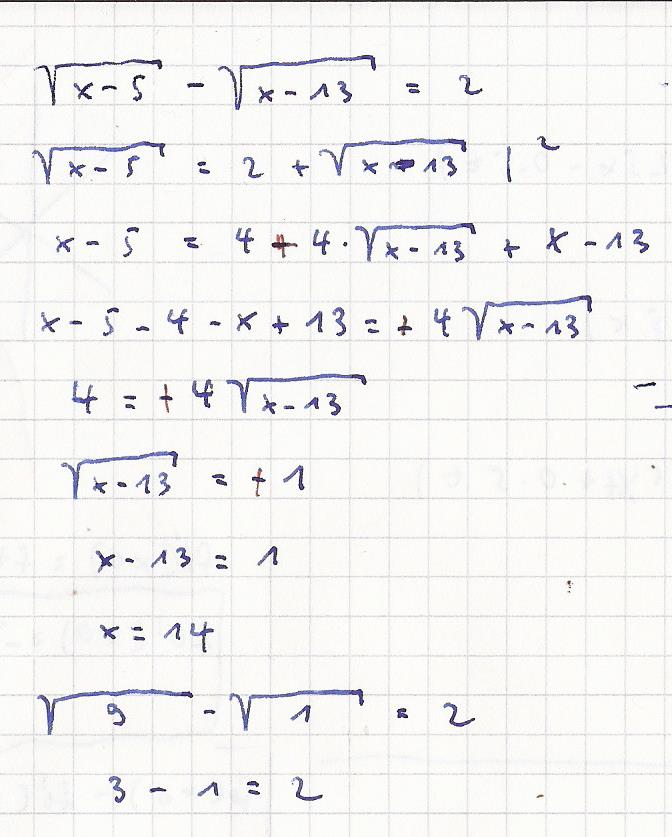 √(x-5) - √(x-13) = 2
√(x-5) = 2 + √(x-13) |²
x-5 = 4 + 4·√(x-13) + x-13
x-5-4-x+13 = +4√(x-13)
4 = +4√(x-13)
√(x-13) = +1
x-13 = 1
x = 14
√9 - √1 = 2
3 - 1 = 2